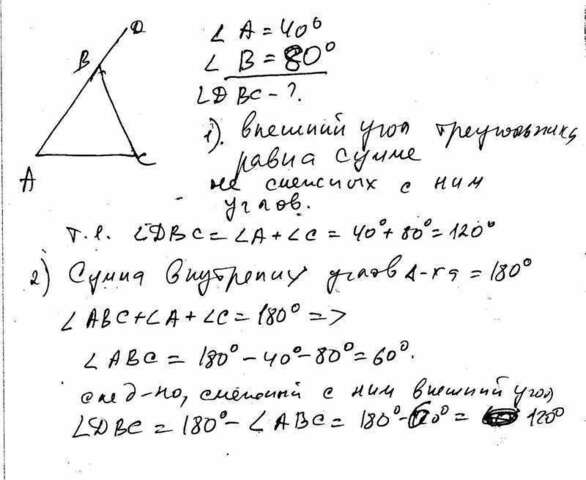 D
B
A
C
∠ A = 40°
∠ B = 80°
∠DBC - ?
1). внешний угол треугольника
равна сумме
не смежных с ним
углов.
т.е. ∠DBC = ∠A + ∠C = 40° + 80° = 120°
2) Сумма внутрених углов Δ-ка = 180°
∠ ABC + ∠A + ∠C = 180° =>
∠ ABC = 180° - 40° - 80° = 60°.
след-но, смежный с ним внешний угол
∠DBC = 180° - ∠ ABC = 180° - 0° = 120°